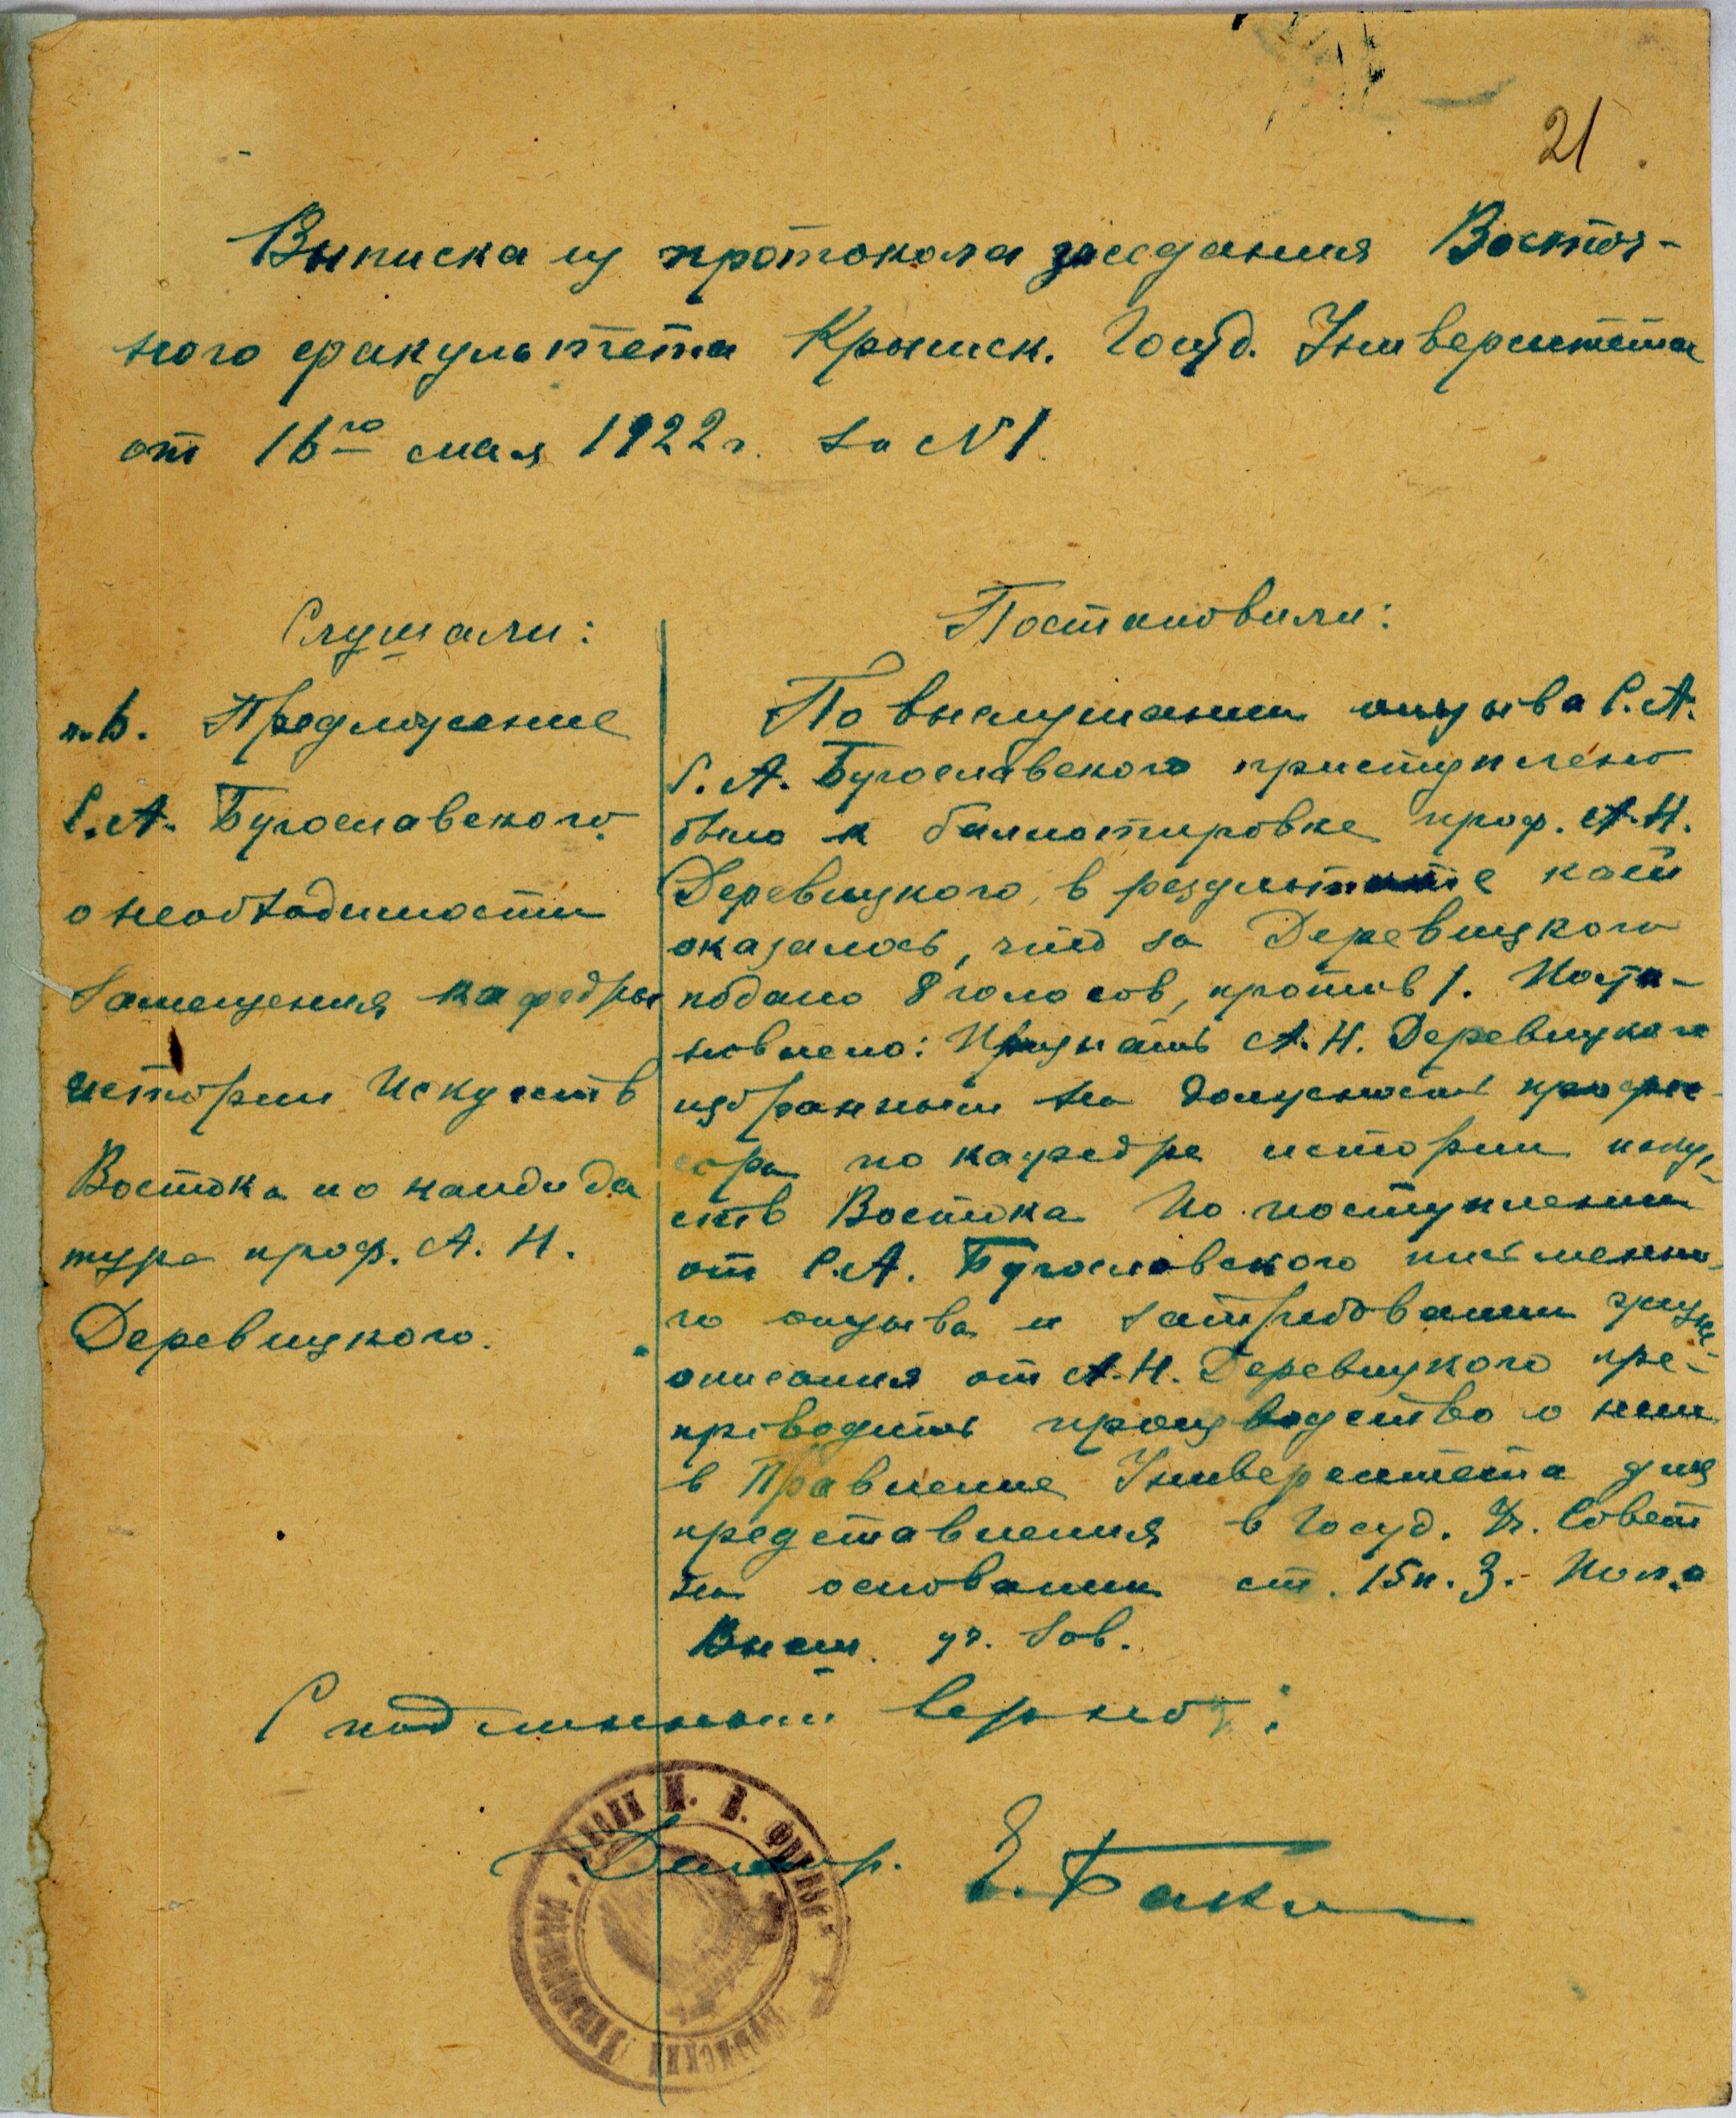 21
Выписка из протокола заседания Восточ-
ного факультета Крымск. Госуд. Университета
от 16го мая 1922 г. за N 1.
Слушали:
п. 6. Предложение
С. А. Бугославского
о необходимости
замещения кафедры
истории Искусств
Востока по кандида
туре проф. А. Н.
Деревицкого.
Постановили:
По выслушании отзыва С. А.
С. А. Бугославского приступлено
было к баллотировке проф. А. Н.
Деревицкого, в результате коей
оказалось, что за Деревицкого
подано 8 голосов, против 1. Поста-
новлено: Признать А. Н. Деревицкого
избранным на должность профес-
сора по кафедре истории иску-
ств Востока. По поступлении
от С. А. Бугославского письменно-
го отзыва и затребовании жизне-
описания от А. Н. Деревицкого пре-
проводить производство о нем
в Правление Университета для
представления в Госуд. Уч. Совет
на основании ст. 15 п. 3.
уч. зав.
С подлинным верно: